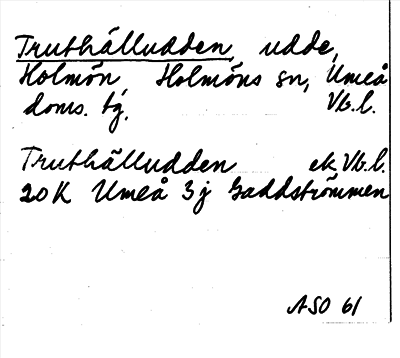 Truthälludden, udde,
Holmön, Holmöns sn, Umeå
doms. tg. Vb.l.
Truthälludden ek. Vb.l.
20K Umeå 3j Gaddströmmen
ASO 61